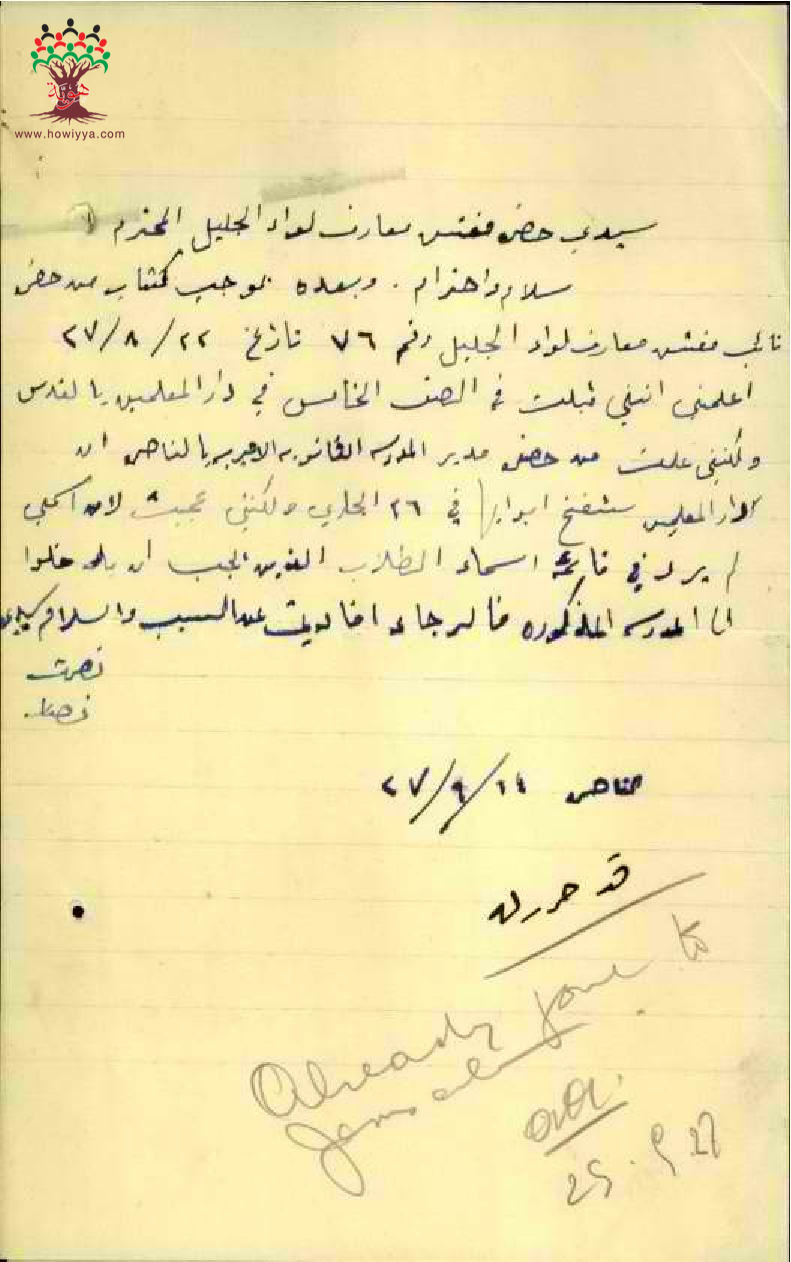 هوية
www.howiyya.com
سيدي حضرة مفتش معارف لواء الجليل المحترم
سلام واحترام . وبعده بموجب كتاب من حضرة
نائب مفتش معارف لواء الجليل رقم ٧٦ تاريخ ٢٢ / ٨ / ٢٧
اعلمني انني قبلت في الصف الخامس في دار المعلمين بالقدس
ولكنني علمت من حضرة مدير المدرسه الثانويه الاميريه بالناصره ان
دار المعلمين ستفتح ابوابها في ٢٦ الجاري ولكنني عجبت لان اسمي
لم يرد في قائمة اسماء الطلاب الذين يجب ان يدخلوا
الى المدرسه المذكوره فالرجاء افادتي عن السبب والسلام سيدي
الناصره ١٤ / ٩ / ٢٧
قد حرر له
Already gone to
Jerusalem
25.9.27